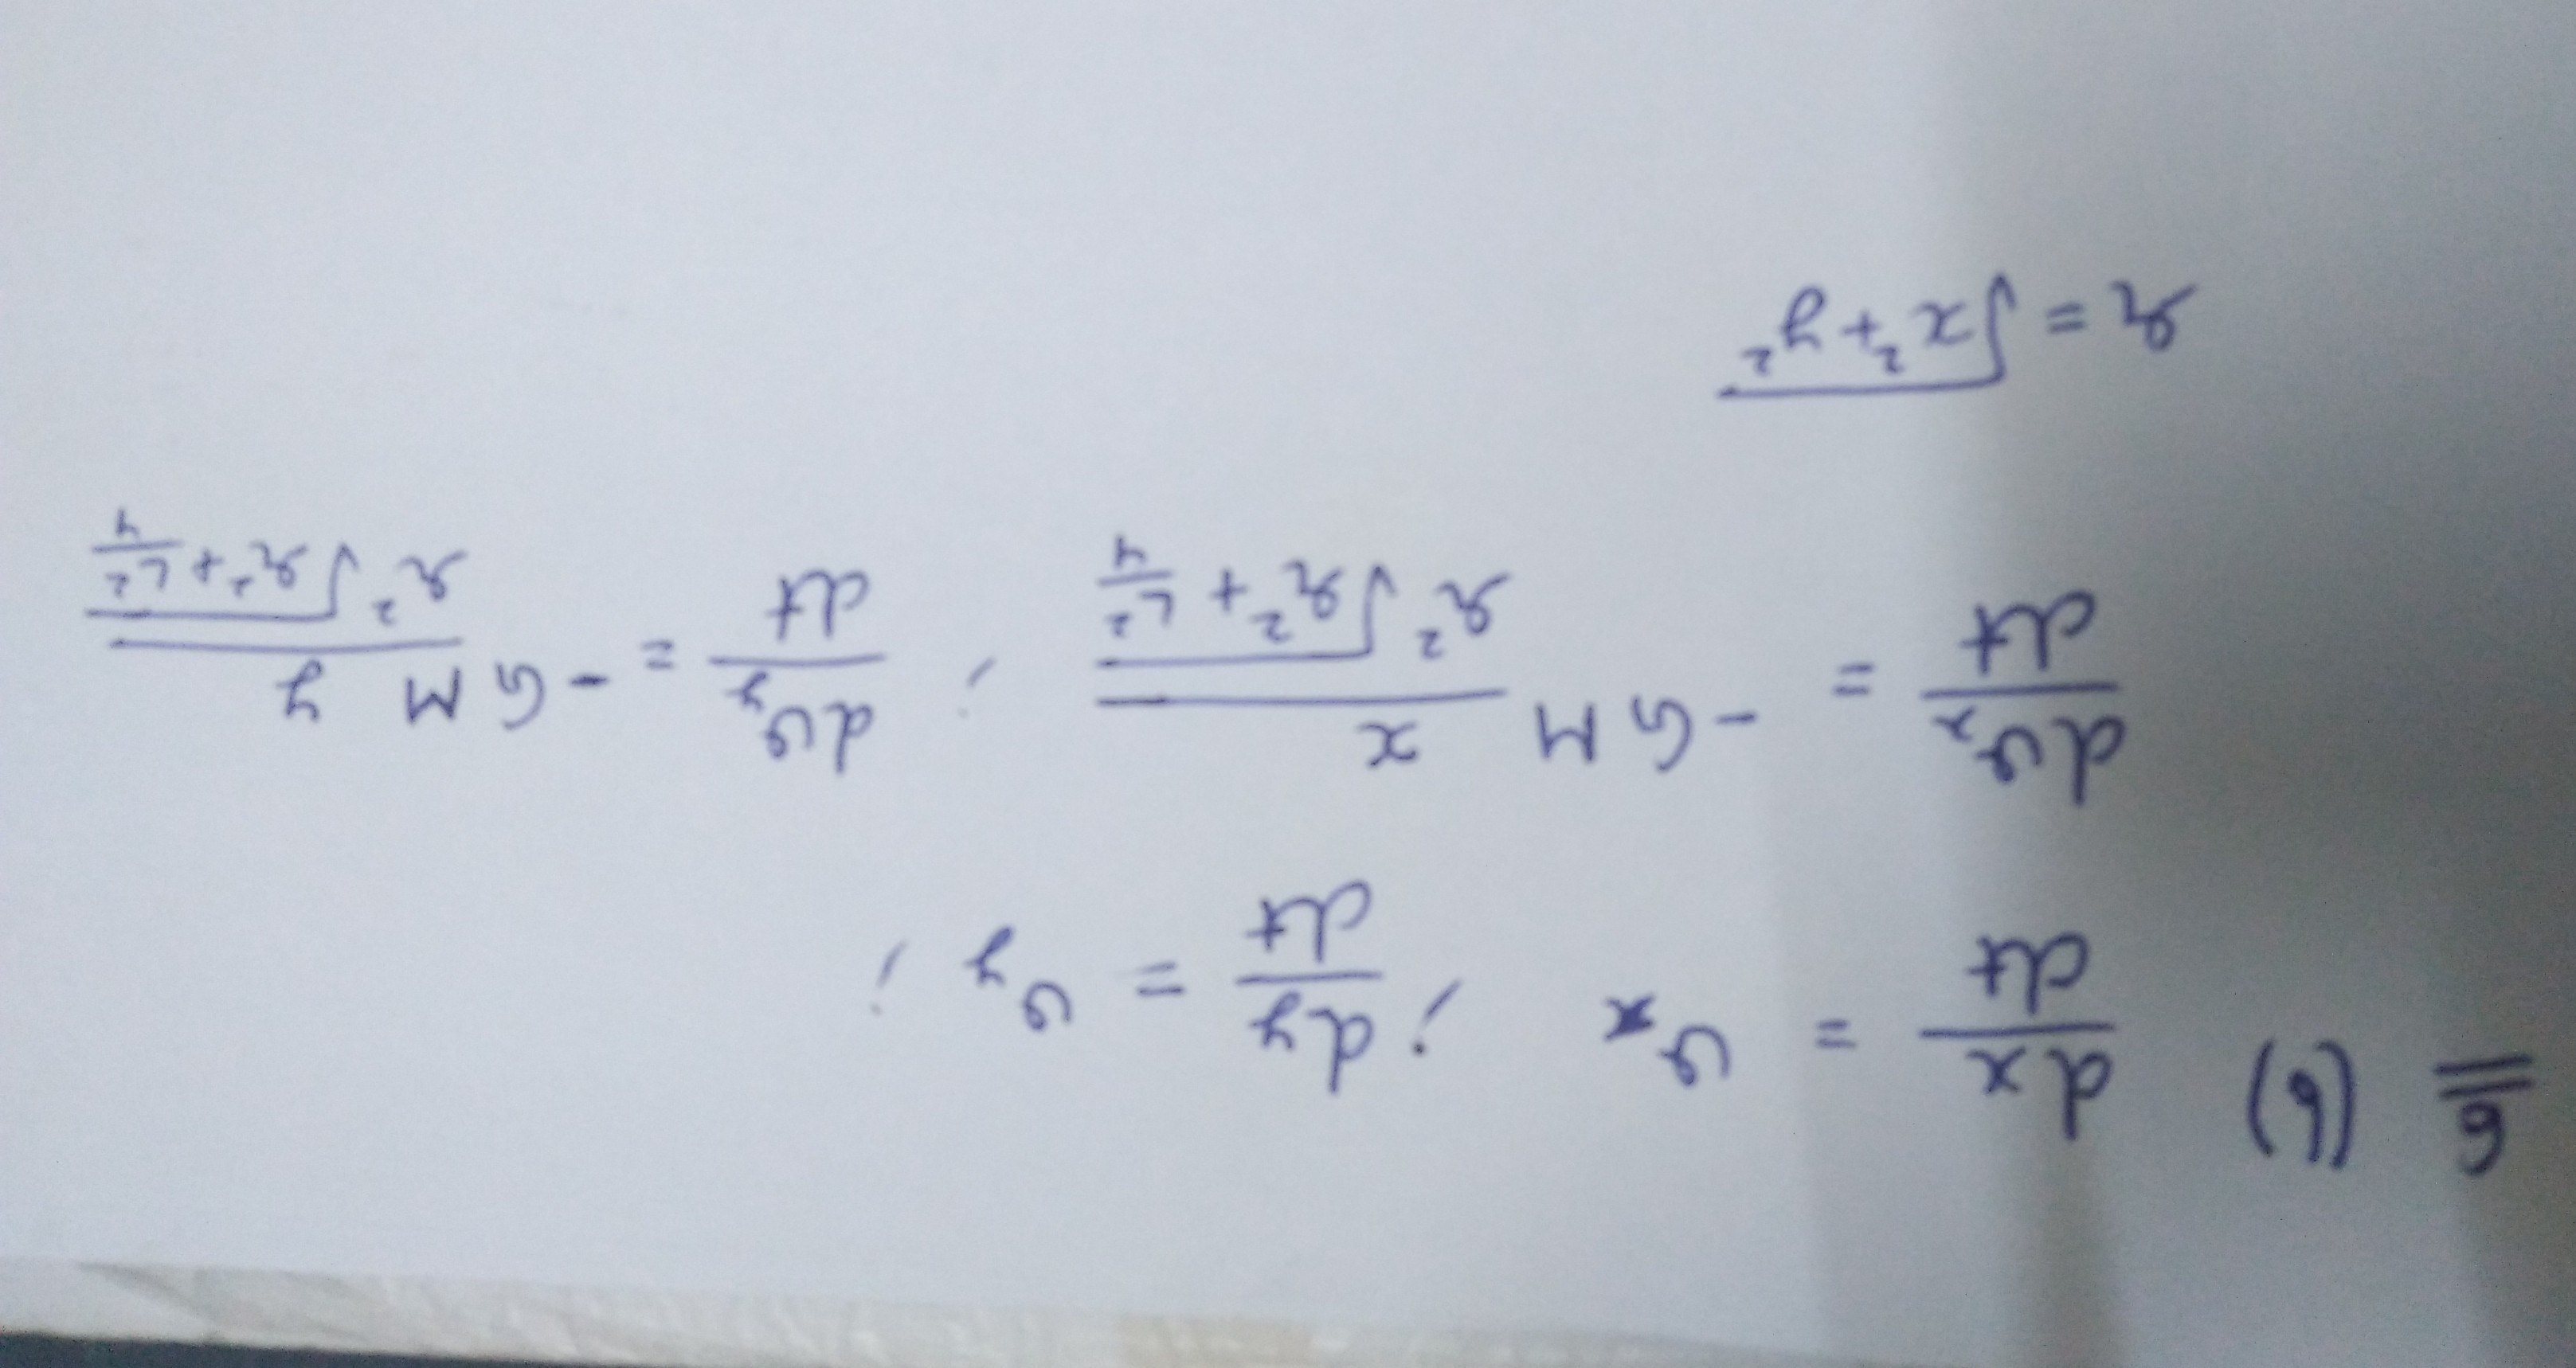 6 (b) dx/dt = v_x ; dy/dt = v_y ;
dv_x/dt = -GM x/(r²√(r² + L²/4)) ; dv_y/dt = -GM y/(r²√(r² + L²/4))
r = √(x² + y²)